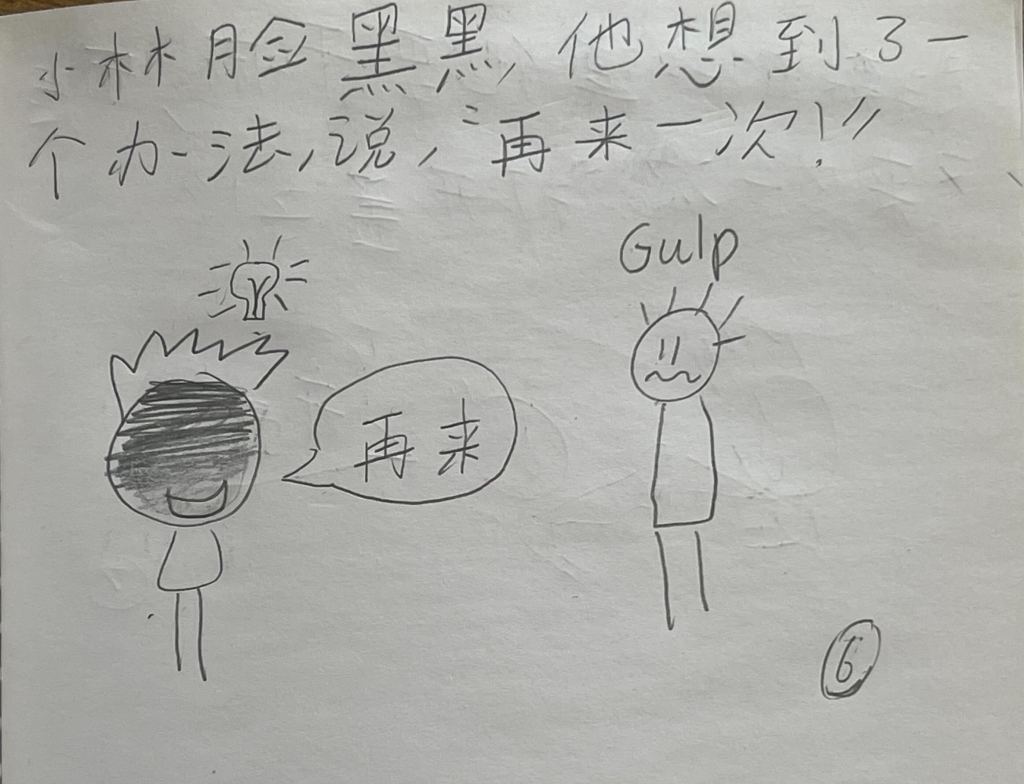 小林脸黑黑,他想到了一
个办法,说,"再来一次!"
Gulp
再来
6